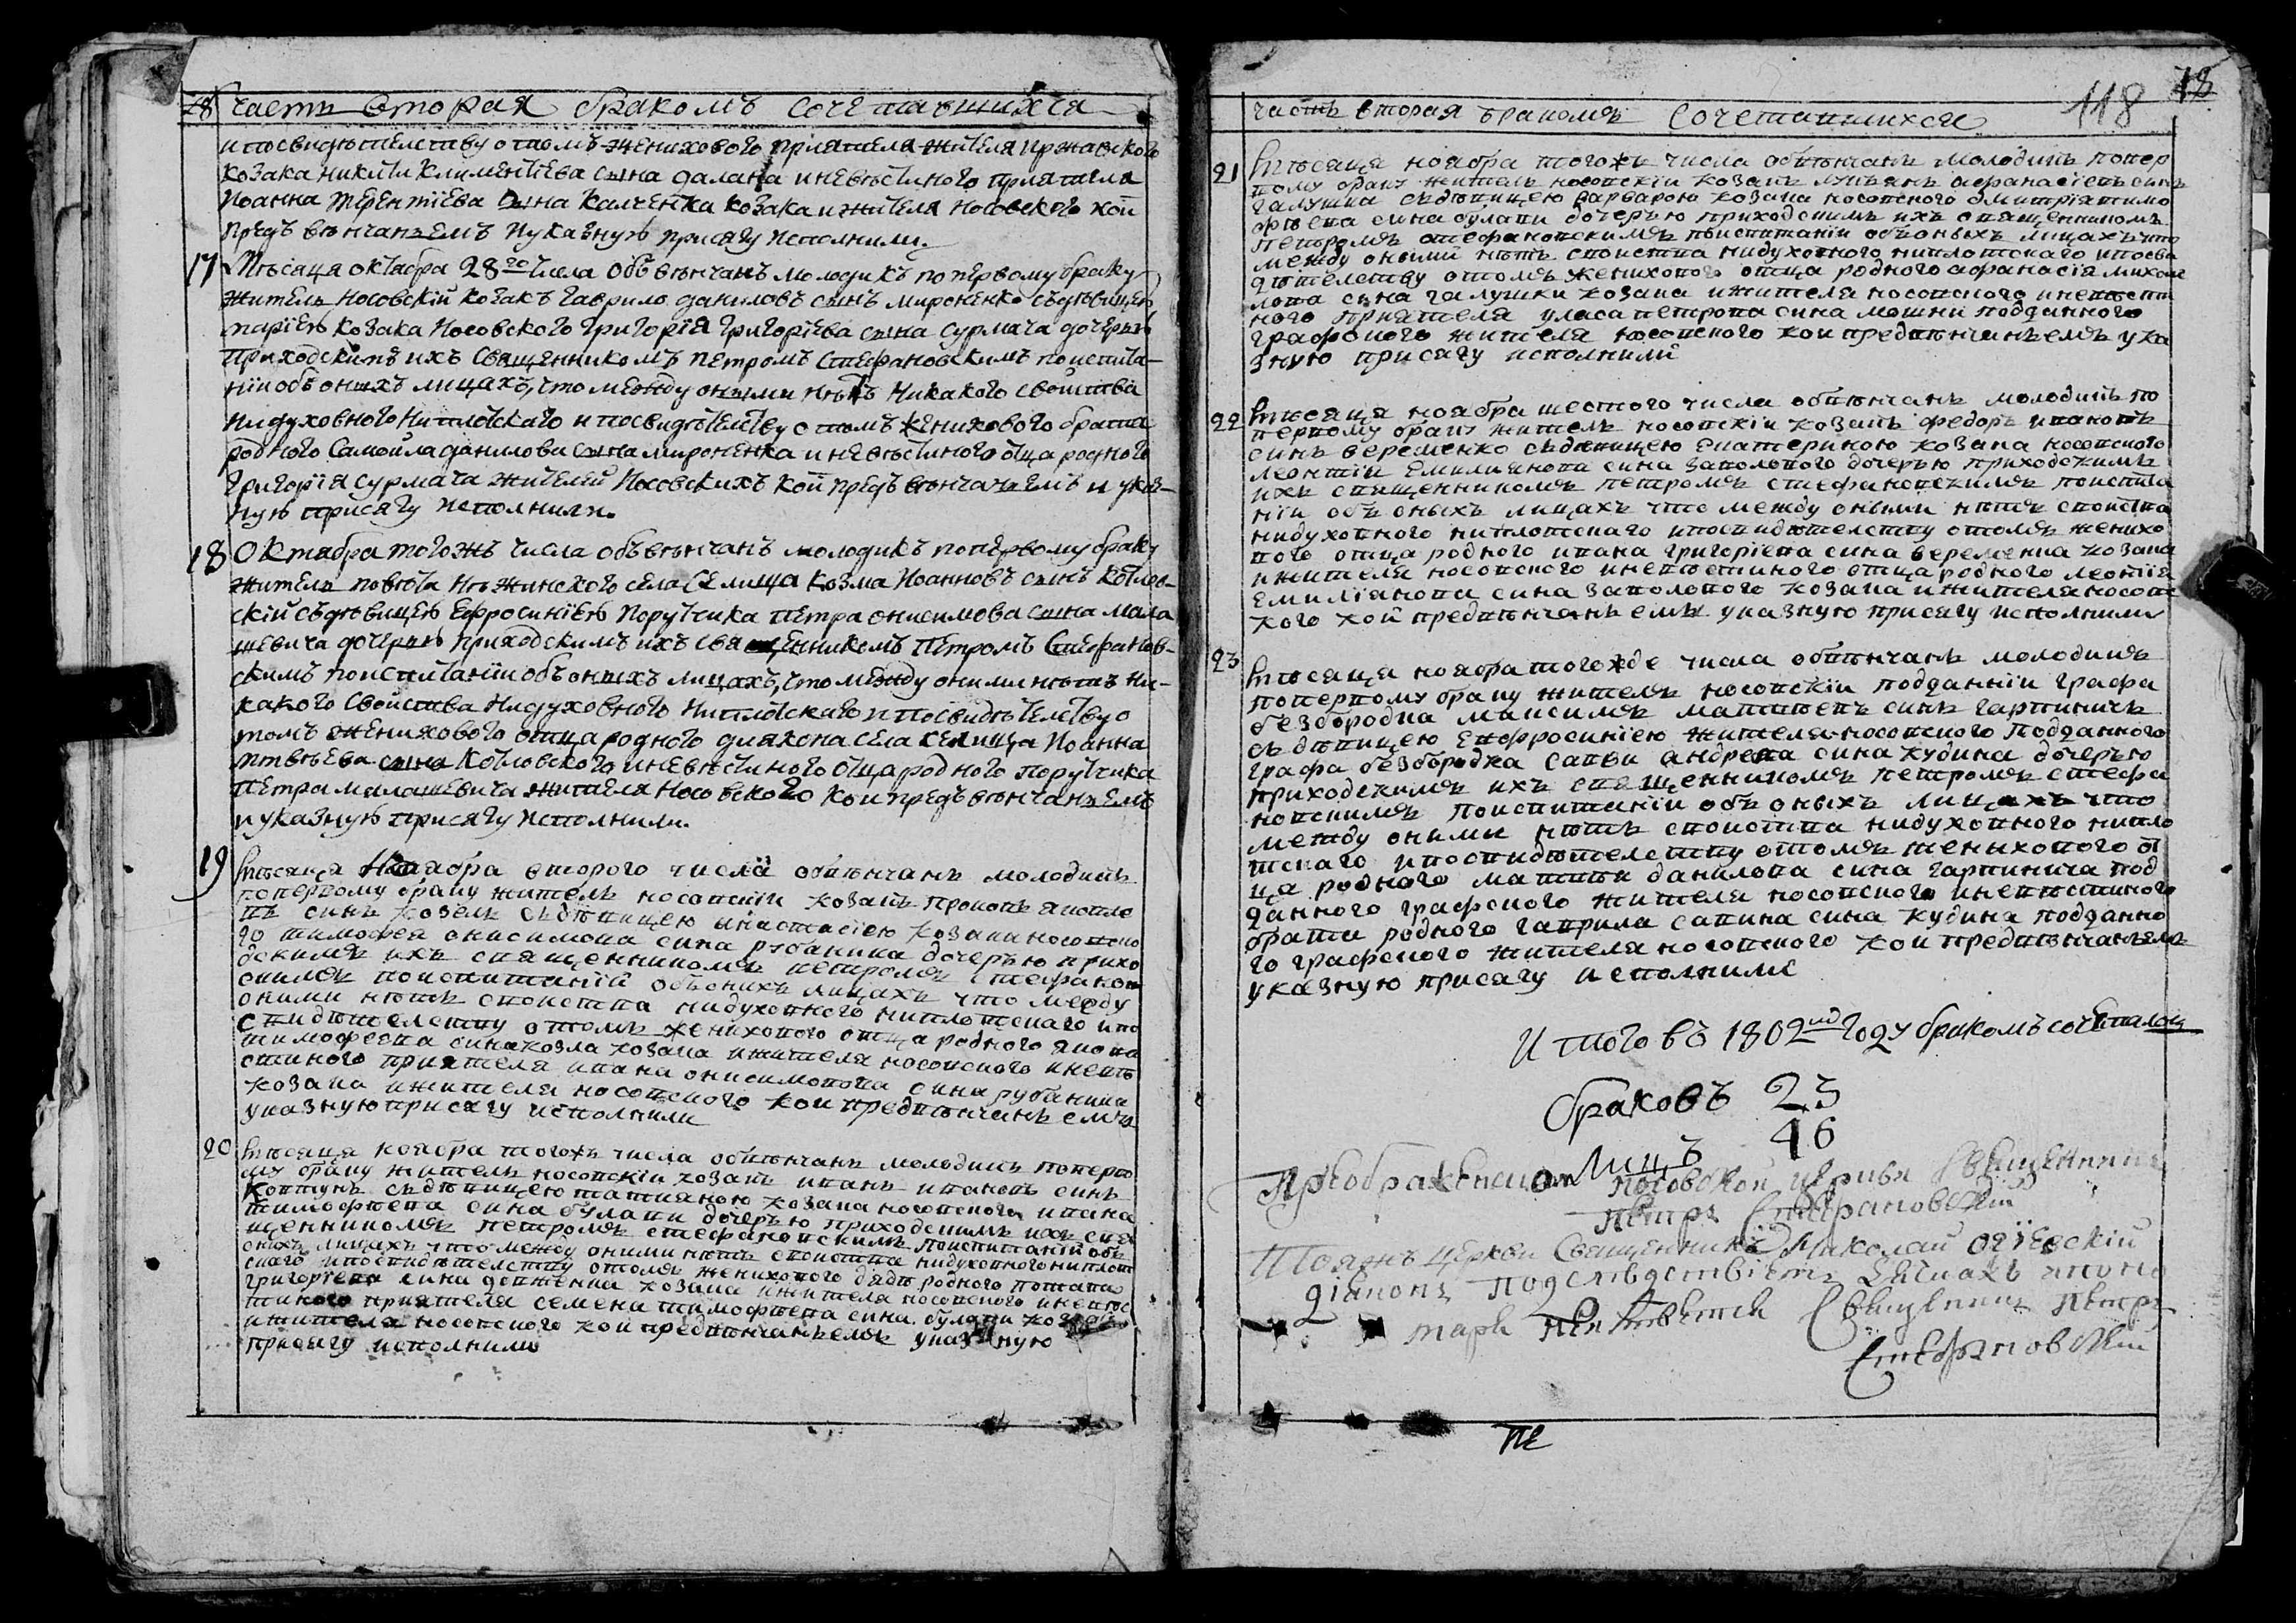 78 часть вторая бракомъ сочетавшихся
и посвидѣтелству отомъ женихового пріятеля жителя иржавского
козака никиты климентіева сына далана иневѣстиного пріятеля
Иоанна терентіева сына калченка козака ижителя носовского кой
предъ вѣнчаніемъ и указную присягу исполнили.
17 Мѣсяца октабра 28го числа обвѣнчанъ молодикъ поперьвому браку
житель носовскій козакъ гаврило даниловъ сынъ мироненко съдѣвицею
маріею козака носовского григорія григоріева сына сурмача дочерью
приходскимъ ихъ священникомъ петромъ стефановскимъ поиспита-
ніи объ оныхъ лицахъ, что между оными нѣтъ никакого свойства
нидуховного ниплотскаго и посвидѣтелству отомъ женихового брата
родного самойла данилова сына мироненка иневѣстиного отца родного
григорія сурмача жителей носовскихъ кой предъ вѣнчаніемъ и указ-
ную присягу исполнили.
18 октабра тогожъ числа объвѣнчанъ молодикъ поперьвому браку
житель повѣта нѣжинского села селища козма Иоанновъ сынъ котлов-
скій съдѣвицею ефросиніею поручика петра онисимова сына мала
шевича дочерью приходскимъ ихъ священникомъ петромъ стефанов-
скимъ поиспитаніи объ оныхъ лицахъ, что между оними нѣтъ ни-
какого свойства нидуховного ниплотскаго и посвидѣтелству о
томъ женихового отца родного диякона села селища Иоанна
матвѣева сына котловского иневѣстиного отца родного поручика
петра малашевича жителя носовского кои предъ вѣнчаніемъ
и указную присягу исполнили.
19 мѣсяца ноября второго числа обвѣнчанъ молодикъ
поперьвому браку житель носовскій козакъ прокопъ яковле
въ синъ козелъ съдѣвицею анастасіею козака носовско
го тимофея онисимова сина рубаника дочерью прихо
дскимъ ихъ священникомъ петромъ стефанов
скимъ поиспитаніи объоныхъ лицахъ что между
оними нѣтъ свойства нидуховного ниплотскаго ипо
свидѣтелству отомъ женихового отца родного якова
тимофеева сина козла козака ижителя носовского иневѣ
стиного пріятеля ивана онисимовова сина рубаника
козака ижителя носовского кои предвѣнчаніемъ
указную присягу исполнили
20 мѣсяца ноября тогожъ числа обвѣнчанъ молодикъ поперво
му браку житель носовскій козакъ иванъ ивановъ синъ
ковтунъ съдѣвицею татияною козака носовского ивана
тимофѣева сина булави дочерью приходскимъ ихъ свя
щенникомъ петромъ стефановскимъ поиспитаніи объ
онихъ лицахъ что между оними нѣтъ свойства нидуховного ниплот
скаго ипосвидѣтелству отомъ женихового дядѣ родного потапа
григоріева сина довженка козака ижителя носовского иневѣс
тиного приятеля семена тимофѣева сина булави козака
ижителя носовского кои предвѣнчаніемъ указную
присягу исполнили
78
118
часть вторая бракомъ сочетавшихся
21 мѣсяца ноября тогожъ числа обвѣнчанъ молодикъ попер
вому браку житель носовскіи козакъ лукъянъ афанасіевъ синъ
галушка съдѣвицею варварою козака носовского дмитрія тимо
фѣева сина булави дочерью приходскимъ ихъ священникомъ
петромъ стефановскимъ поиспитаніи объоныхъ лицахъ что
между оними нѣтъ свойства нидуховного ниплотскаго ипосви
дѣтелству отомъ женихового отца родного афанасія михаи
лова сина галушки козака ижителя носовского иневѣсти
ного приятеля уласа петрова сина мошни подданного
графского жителя носовского кои предвѣнчаніемъ ука
зную присягу исполнили
22 мѣсяца ноября шестого числа обвѣнчанъ молодикъ по
первому браку житель носовскіи козакъ федоръ ивановъ
синъ веременко съдѣвицею екатериною козака носовского
леонтіи емилиянова сина заполового дочерью приходскимъ
ихъ священникомъ петромъ стефановскимъ поиспита
ніи объ оныхъ лицахъ что между оними нѣтъ свойства
нидуховного ниплотскаго ипосвидѣтелству отомъ женихо
вого отца родного ивана григоріева сина веременка козака
ижителя носовского иневѣстиного отца родного леонтія
емиліянова сина заполового козака ижителя носовс
кого кой предвѣнчаніемъ указную присягу исполнили
23 мѣсяца ноября тогожде числа обвѣнчанъ молодикъ
поперпому браку житель носовскіи подданніи графа
безбородка максимъ матвѣевъ синъ гарвиничъ
съдѣвицею енфросиніею жителя носовского подданного
графа безбородка савви андреева сина кудина дочерью
приходскимъ ихъ священникомъ петромъ стефа
новскимъ поиспитаніи объ оныхъ лицахъ что
между оними нѣтъ свойства нидуховного нипло
тскаго ипосвидѣтелству отомъ женихового от
ца родного матвѣи данилова сина гарвинича под
данного графского жителя носовского иневѣстиного
брати родного гаврила савина сина кудина подданно
го графского жителя носовского кои предвѣнчаніемъ
указную присягу исполнили
И того въ 1802мъ году бракомъ сочеталось
браковъ 23
лицъ 46
Преображенской носовской церкви священникъ
петръ Стефановскій
Тояжъ церкви Священникъ Николай огіевскій
діаконъ
Священникъ Петръ
Стефановскій
пе